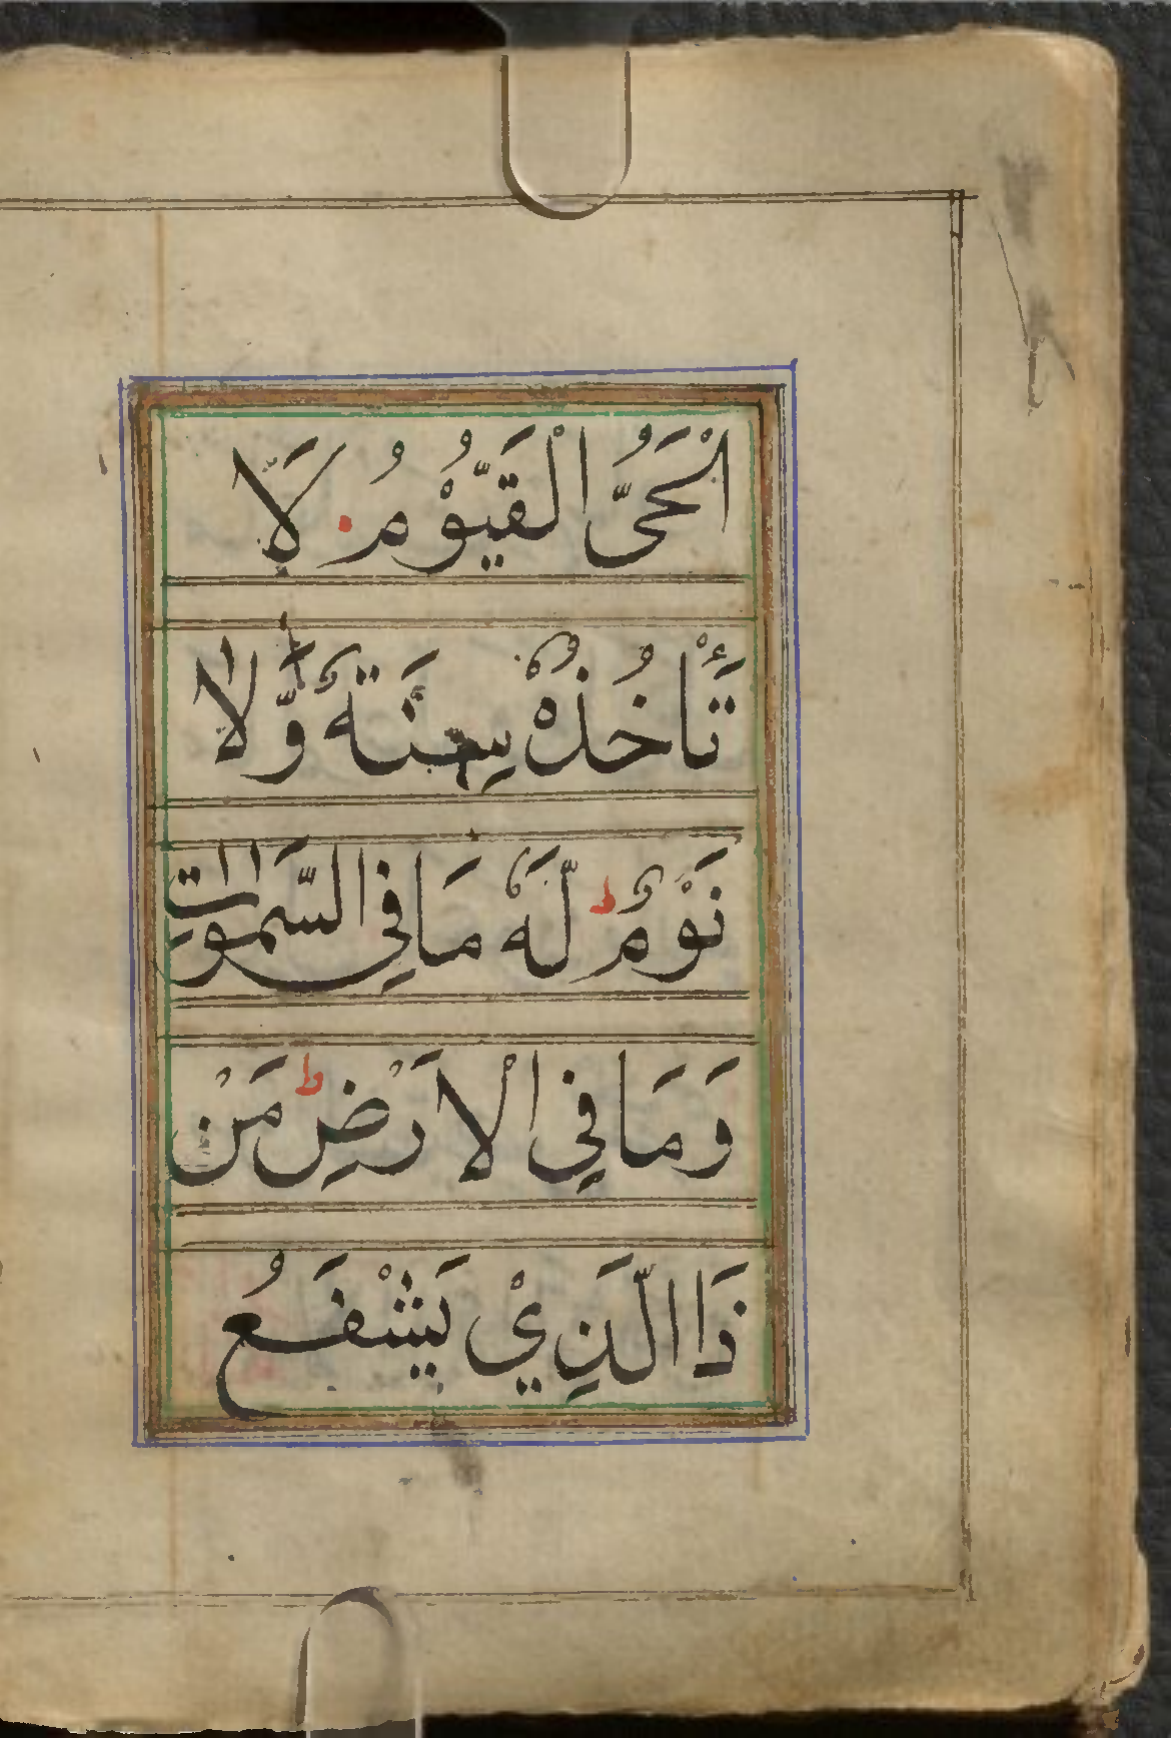 اَلْحَىُّ الْقَيُّوْمُ لَا
تَأْخُذُهٗ سِنَةٌ وَّلَا
نَوْمٌ ط لَّهٗ مَا فِي السَّمٰوٰتِ
وَمَا فِي الْاَرْضِ ط مَنْ
ذَا الَّذِيْ يَشْفَعُ